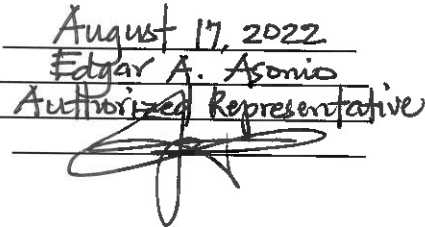 August 17, 2022
Edgar A. Asonio
Authorized Representative